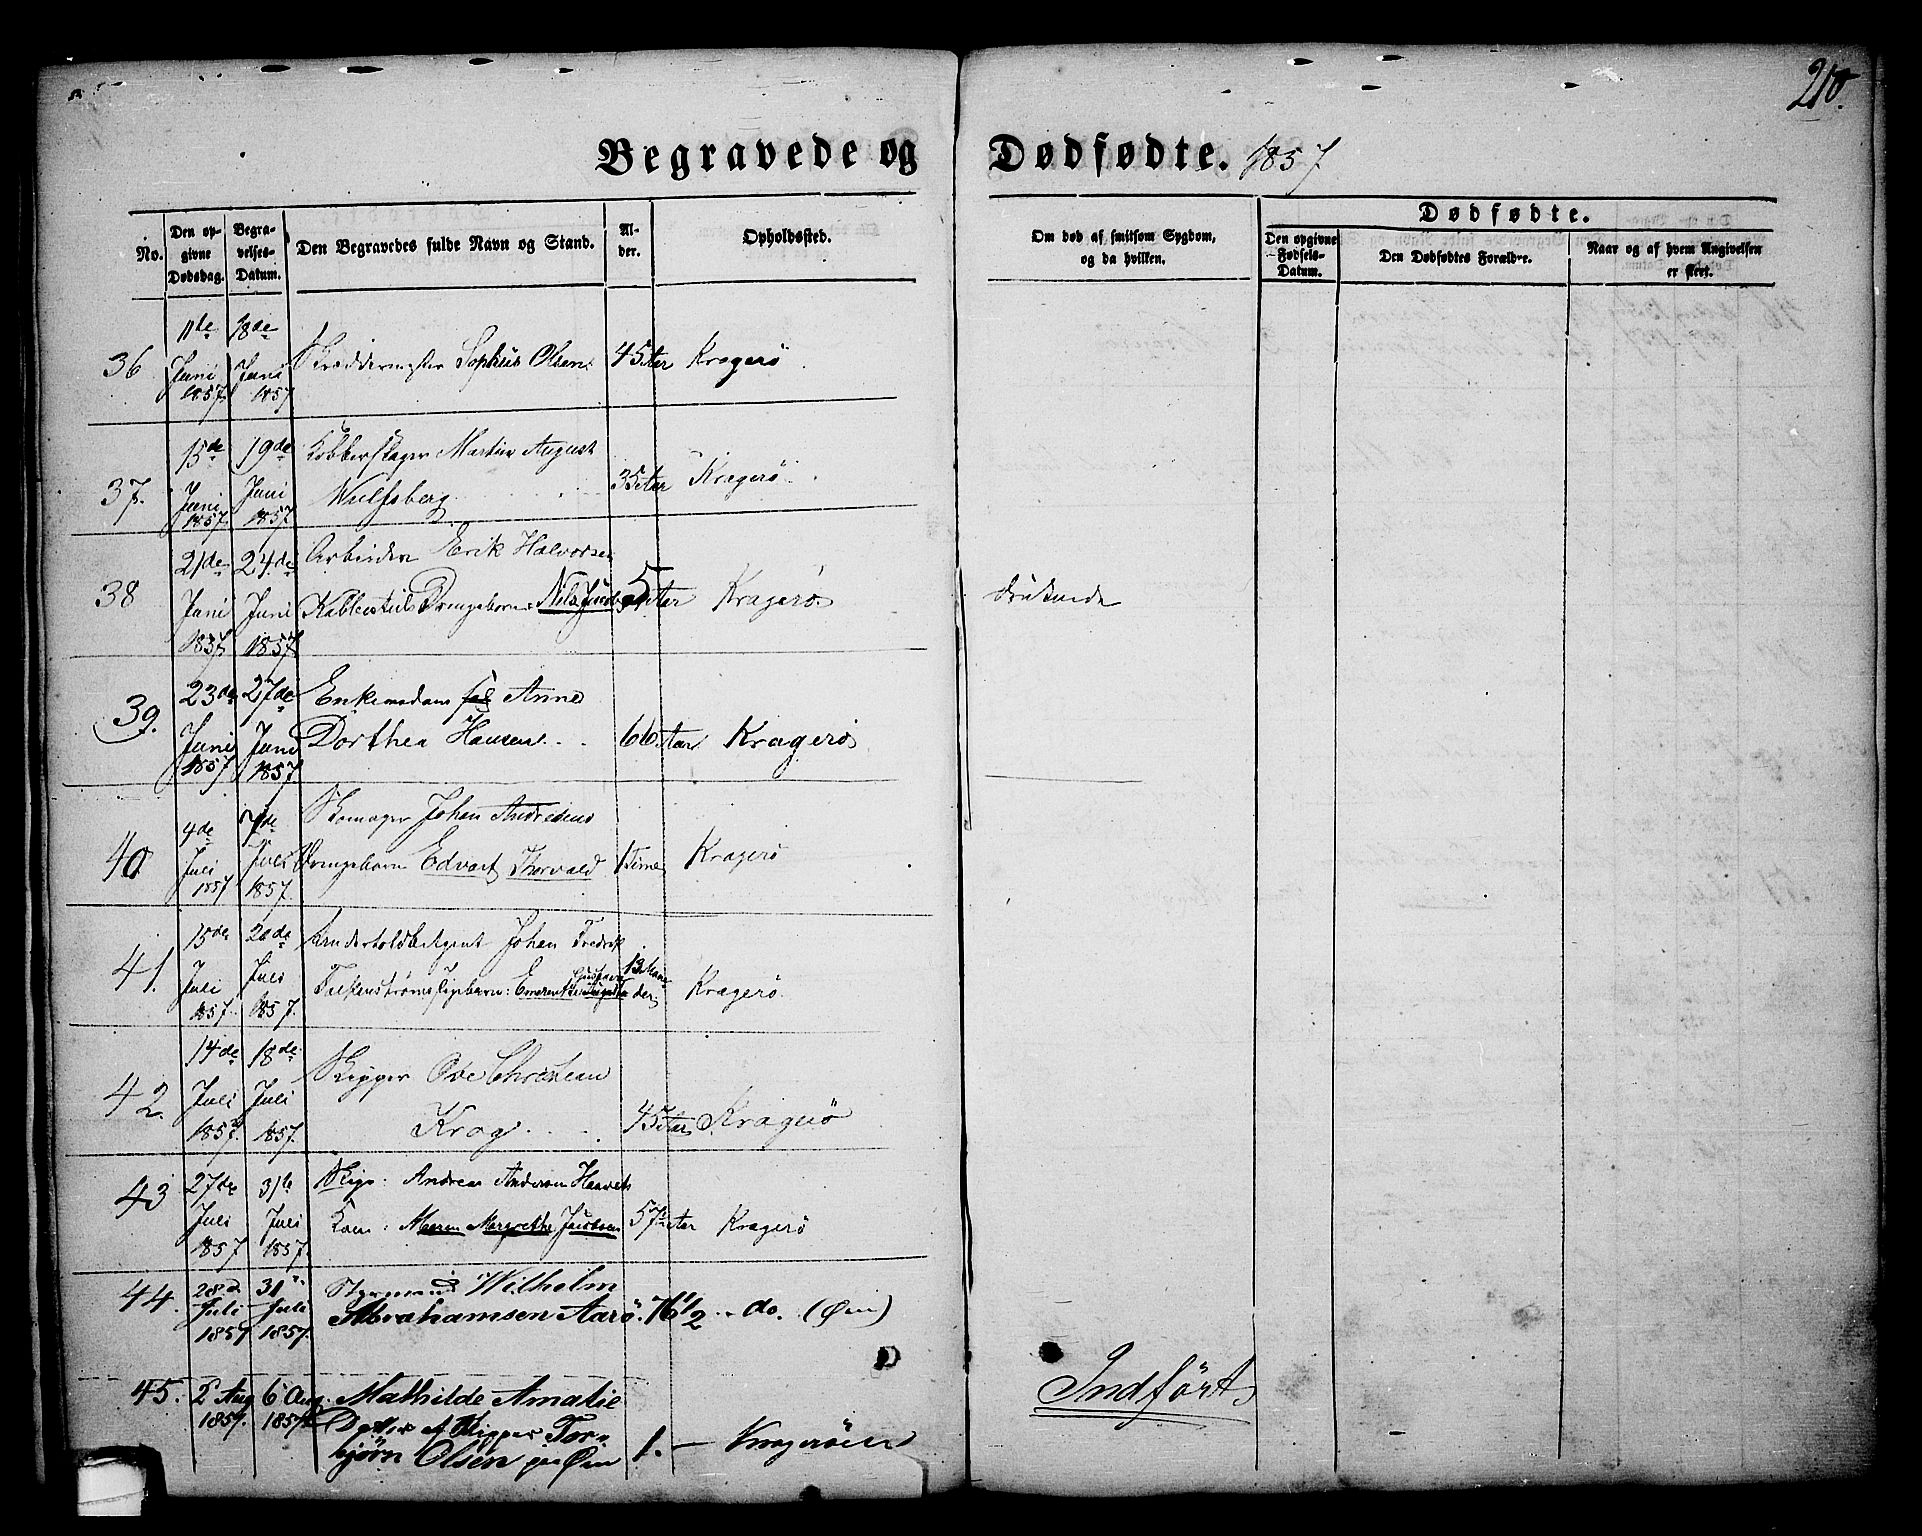 210.
Begravede og Dødfødte. 1857
No.
Den opgivne Dødsdag.
Begravelses-Datum.
Den Begravedes fulde Navn og Stand.
Alder.
Opholdssted.
Om død af smitsom Sygdom, og da hvilken.
Dødfødte.
Den opgivne Fødsels-Datum.
Den Dødfødtes Forældre.
Naar og af hvem Angivelsen er skeet.
36 11te Juni 1857 18de Juni 1857 Skræddermester Sophus Olsen 45 Aar Kragerö
37. 15de Juni 1857 19de Juni 1857 Kobberslager Martin August
Wulfsberg 35 Aar Kragerö
38 21de Juni 1857 24de Juni 1857 Arbeider Erik Halvorsen
Drengebarn: Nils Jacob 5 Aar Kragerö druknede
39. 23de Juni 1857 27de Juni 1857 Enkemadam Anne
Dorthea Hansen 66 Aar Kragerö
40 4de Juli 1857 7de Juli 1857 Skomager Johan Andresens
Drengebarn Edvart Thorvald 1 Time Kragerö
41. 15de Juli 1857 20de Juli 1857 Johan Fredrik
Falkenstrøms Pigebarn: Gustava 13 Maaneder Kragerö
42. 14de Juli 1857 18de Juli 1857 Skipper Ove Christian
Krog 45 Aar Kragerö
43 27de Juli 1857 31te Juli 1857 Skip: Andreas Andersen
Kone: Maren Margrethe Jacobsen 57 Aar Kragerö
44. 28d Juli 1857 31 Juli 1857. Styrmand Wilhelm
Abrahamsen Aarö. 76 1/2 do. (Øin)
45. 2 Aug 1857. 6 Aug. 1857 Mathilde Amalie
Datter af Skipper Tor-
bjørn Olsen paa Øin 1. — Kragerøen
Indført